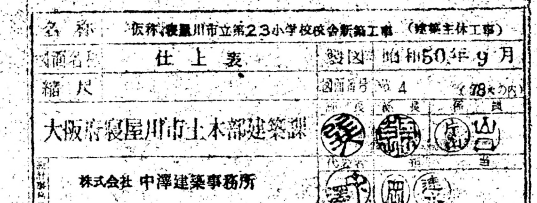 名称 仮称,寝屋川市立第23小学校校舎新築工事 (建築主体工事)
図面名称 仕上表 製図 昭和50年9月
縮尺 図面番号 No. 4 (78枚の内)
大阪府寝屋川市土木部建築課
株式会社 中澤建築事務所